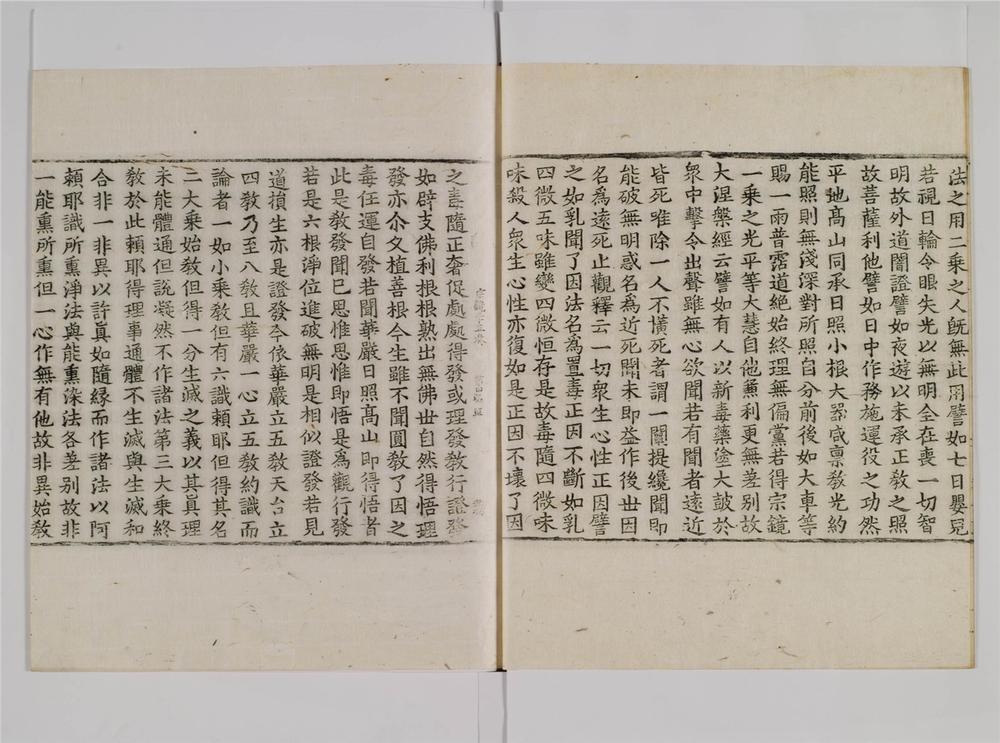 法之用二乗之人旣無此用譬如七日嬰兒
若視日輪令眼失光以無明全在喪一切智
明故外道闇證譬如夜遊以未承正敎之照
故菩薩利他譬如日中作務施運役之功然
平地髙山同承日照小根大器咸禀敎光約
能照則無淺深對所照自分前後如大車等
賜一雨普霑道絶始終理無偏黨若得宗鏡
一乗之光平等大慧自他兼利更無差别故
大涅槃經云譬如有人以新毒藥塗大鼓於
衆中擊令出聲雖無心欲聞若有聞者遠近
皆死唯除一人不横死者謂一闡提纔聞即
能破無明惑名爲近死聞未即益作後世因
名爲遠死止觀釋云一切衆生心性正因譬
之如乳聞了因法名爲置毒正因不斷如乳
四微五味雖變四微恒存是故毒隨四微味
味殺人衆生心性亦復如是正因不壞了因
之毒隨正奢促處處得發或理發敎行證發
如辟支佛利根根熟出無佛世自然得悟理
發亦尒久植善根今生雖不聞圓敎了因之
毒任運自發若聞華嚴日照髙山即得悟者
此是敎發聞已思惟思惟即悟是爲觀行發
若是六根淨位進破無明是相似證發若見
道損生亦是證發今依華嚴立五敎天台立
四敎乃至八敎且華嚴一心立五敎約識而
論者一如小乗敎但有六識頼耶但得其名
二大乗始敎但得一分生滅之義以其眞理
未能體通但說凝然不作諸法第三大乗終
敎於此頼耶得理事通體不生滅與生滅和
合非一非異以許眞如隨緣而作諸法以阿
頼耶識所熏淨法與能熏染法各差别故非
一能熏所熏但一心作無有他故非異始敎